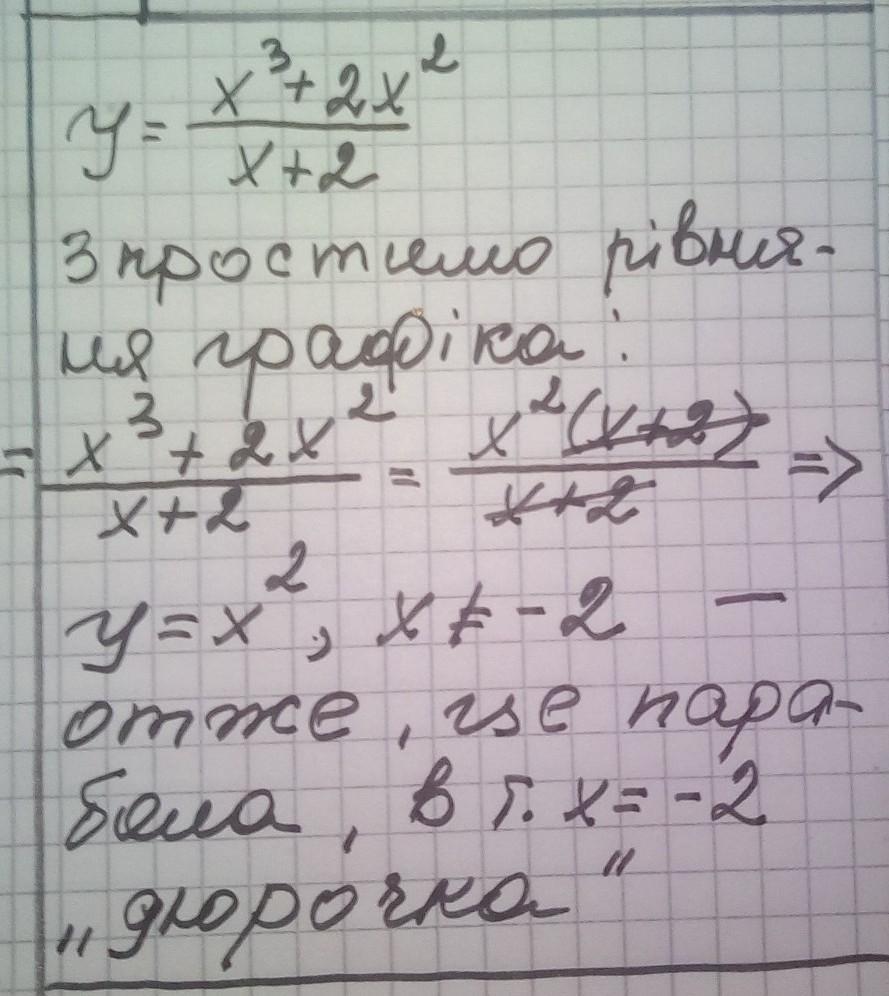 y = (x³ + 2x²)/(x + 2)
Зпростимо рівня-
ня графіка:
= (x³ + 2x²)/(x + 2) = (x²(x+2))/(x+2) =>
y = x², x ≠ -2 —
отже, це пара-
бола, в т. x = -2
„дюрочка"